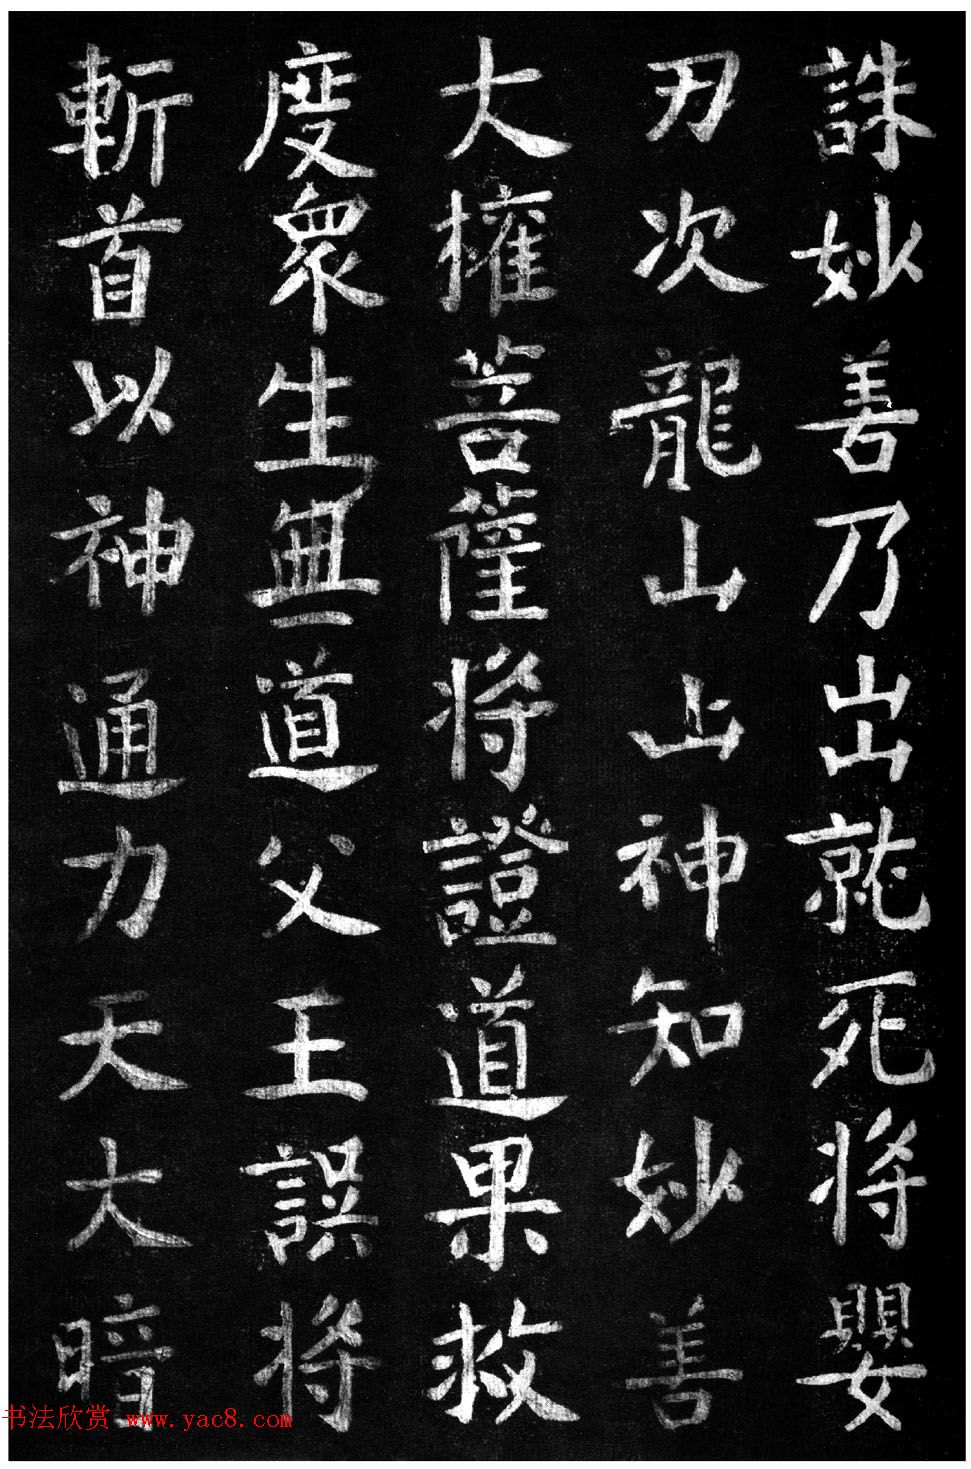 誅妙善乃出就死將嬰
刃次龍山山神知妙善
大權菩薩將證道果救
度眾生無道父王誤將
斬首以神通力天大暗
书法欣赏 www.yac8.com